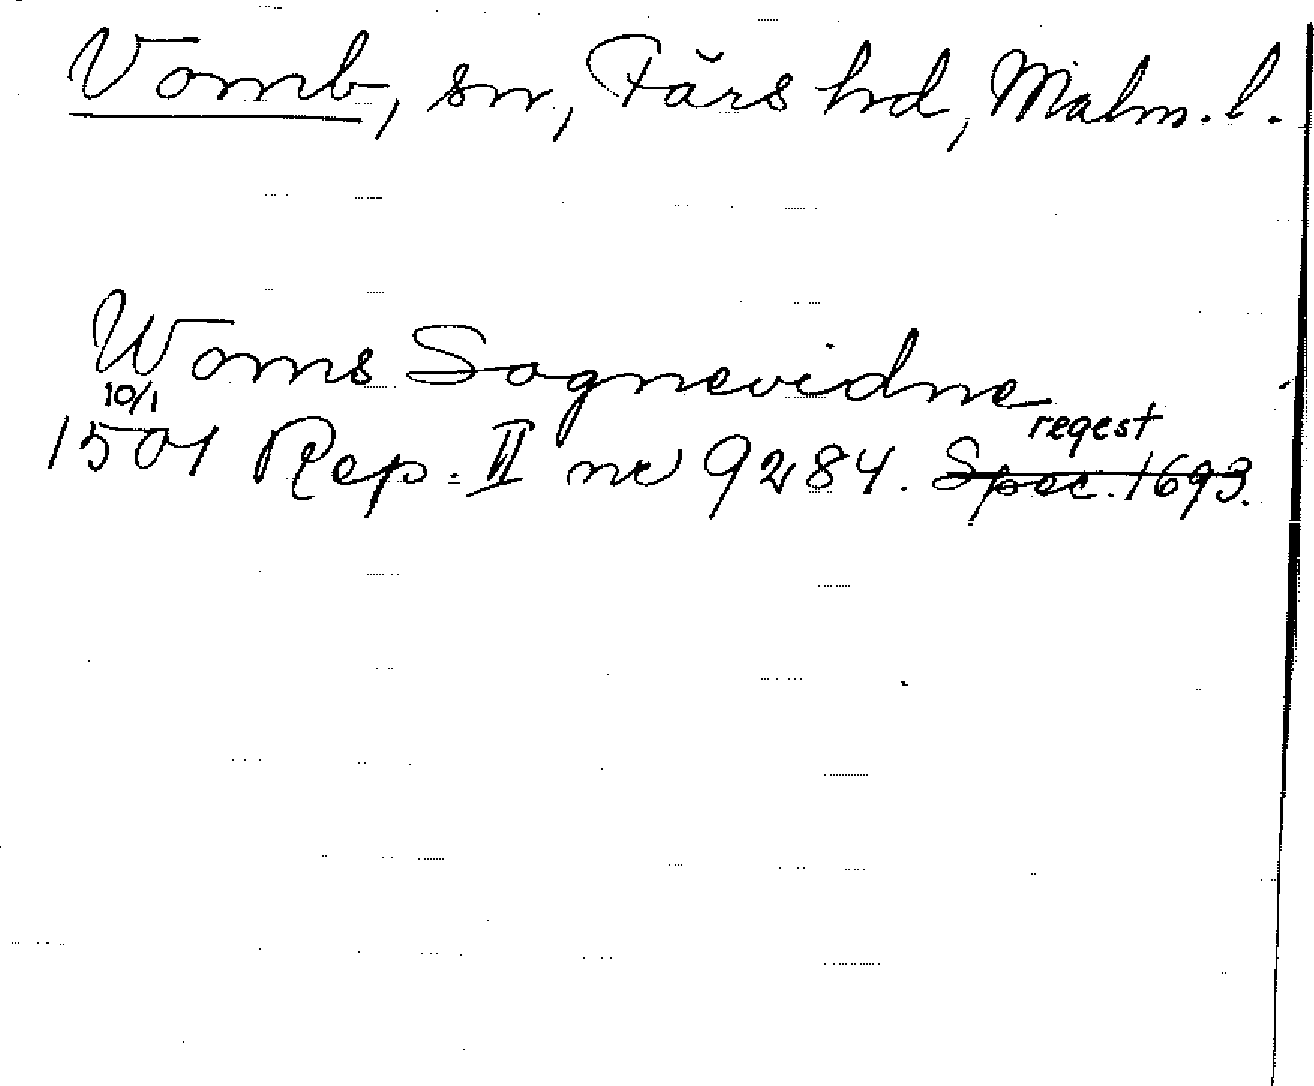 Vomb, sn, Färs hd, Malm. l.
Woms Sognevidne
10/1 regest
1501 Rep. II nr 9284. Spec. 1693.